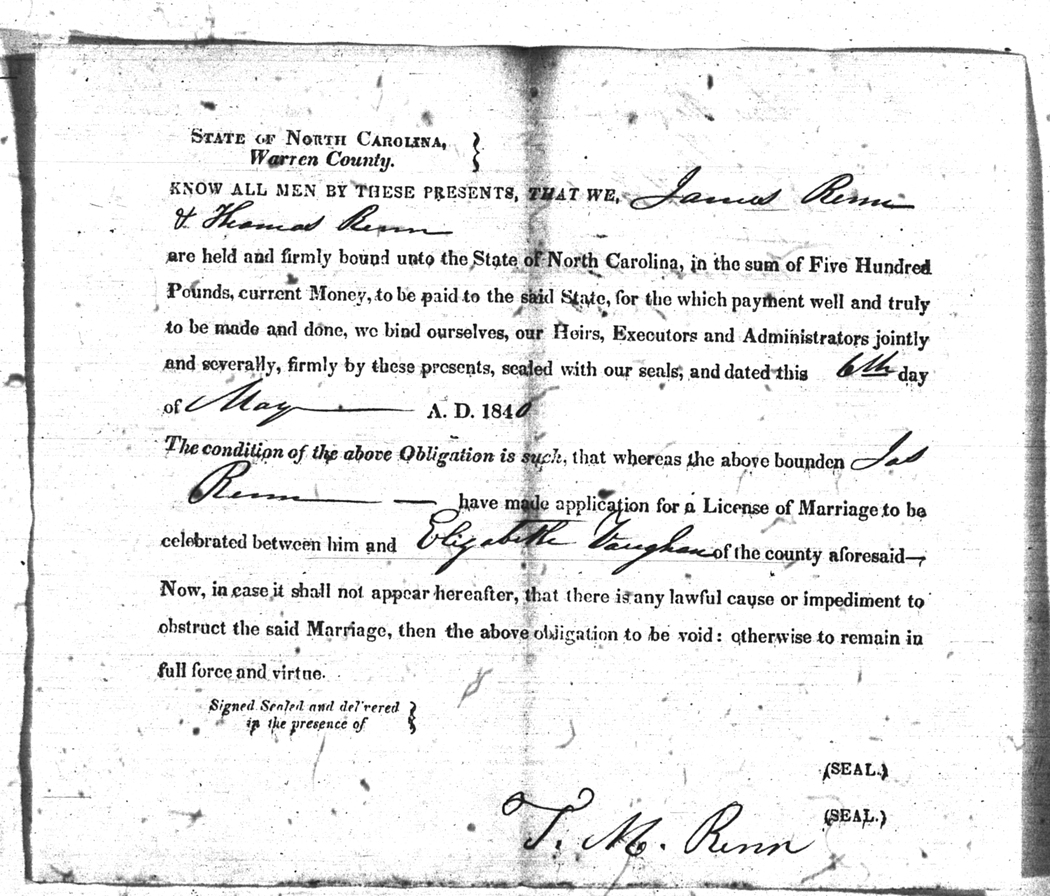 STATE OF NORTH CAROLINA, }
Warren County.
KNOW ALL MEN BY THESE PRESENTS, THAT WE, James Renn
& Thomas Renn
are held and firmly bound unto the State of North Carolina, in the sum of Five Hundred
Pounds, current Money, to be paid to the said State, for the which payment well and truly
to be made and done, we bind ourselves, our Heirs, Executors and Administrators jointly
and severally, firmly by these presents, sealed with our seals, and dated this 6th day
of May A. D. 1840
The condition of the above Obligation is such, that whereas the above bounden Jas
Renn have made application for a License of Marriage to be
celebrated between him and Elizabeth Vaughan of the county aforesaid—
Now, in case it shall not appear hereafter, that there is any lawful cause or impediment to
obstruct the said Marriage, then the above obligation to be void: otherwise to remain in
full force and virtue.
Signed Sealed and delivered }
in the presence of
(SEAL.)
(SEAL.)
T. M. Renn